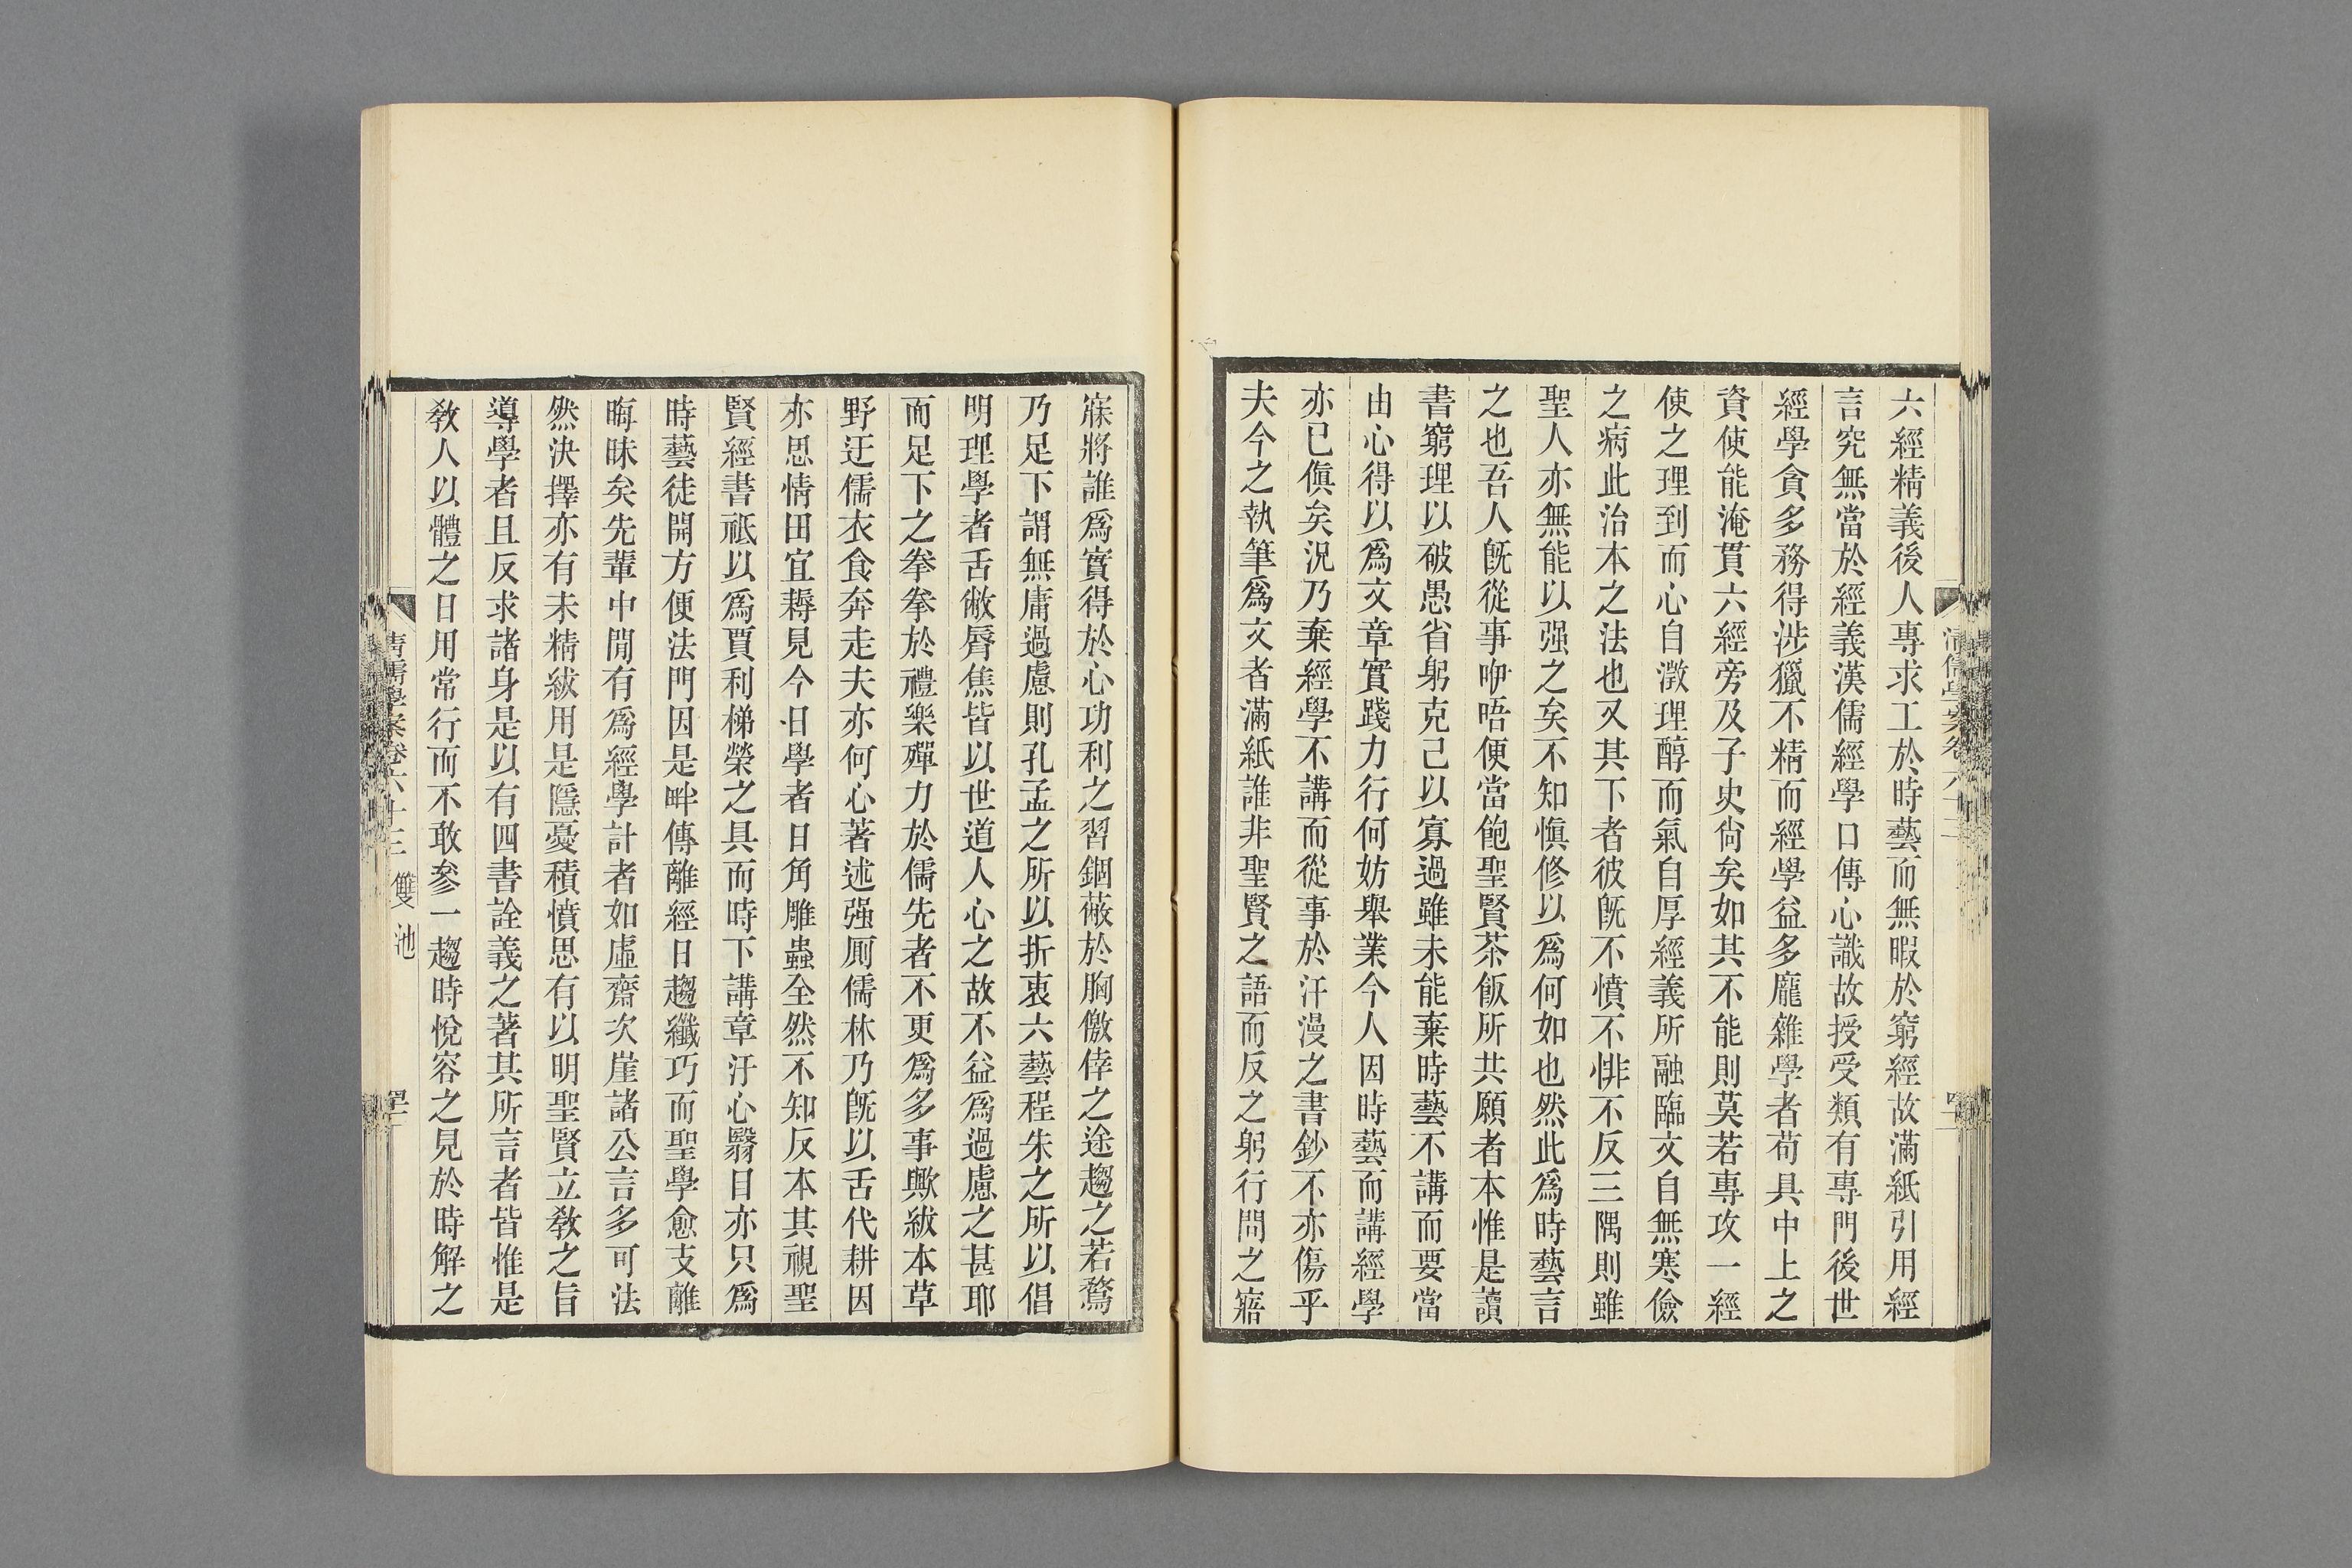 六經精義後人專求工於時藝而無暇於窮經故滿紙引用經
言究無當於經義漢儒經學口傳心識故授受類有專門後世
經學貪多務得涉獵不精而經學益多龐雜學者苟具中上之
資使能淹貫六經旁及子史尙矣如其不能則莫若專攻一經
使之理到而心自澂理醇而氣自厚經義所融臨文自無寒儉
之病此治本之法也又其下者彼旣不憤不悱不反三隅則雖
聖人亦無能以强之矣不知愼修以爲何如也然此爲時藝言
之也吾人旣從事咿唔便當飽聖賢茶飯所共願者本惟是讀
書窮理以破愚省躬克己以寡過雖未能棄時藝不講而要當
由心得以爲文章實踐力行何妨舉業今人因時藝而講經學
亦已傎矣況乃棄經學不講而從事於汗漫之書鈔不亦傷乎
夫今之執筆爲文者滿紙誰非聖賢之語而反之躬行問之寤
寐將誰爲實得於心功利之習錮蔽於胸儌倖之途趨之若鶩
乃足下謂無庸過慮則孔孟之所以折衷六藝程朱之所以倡
明理學者舌敝脣焦皆以世道人心之故不益爲過慮之甚耶
而足下之拳拳於禮樂殫力於儒先者不更爲多事歟紱本草
野迂儒衣食奔走夫亦何心著述强厠儒林乃旣以舌代耕因
亦思情田宜耨見今日學者日角雕蟲全然不知反本其視聖
賢經書祗以爲賈利梯榮之具而時下講章汙心翳目亦只爲
時藝徒開方便法門因是畔傳離經日趨纖巧而聖學愈支離
晦昧矣先輩中閒有爲經學計者如虛齋次崖諸公言多可法
然決擇亦有未精紱用是隱憂積憤思有以明聖賢立敎之旨
導學者且反求諸身是以有四書詮義之著其所言者皆惟是
敎人以體之日用常行而不敢參一趨時悅容之見於時解之
清儒學案卷六十三 雙池